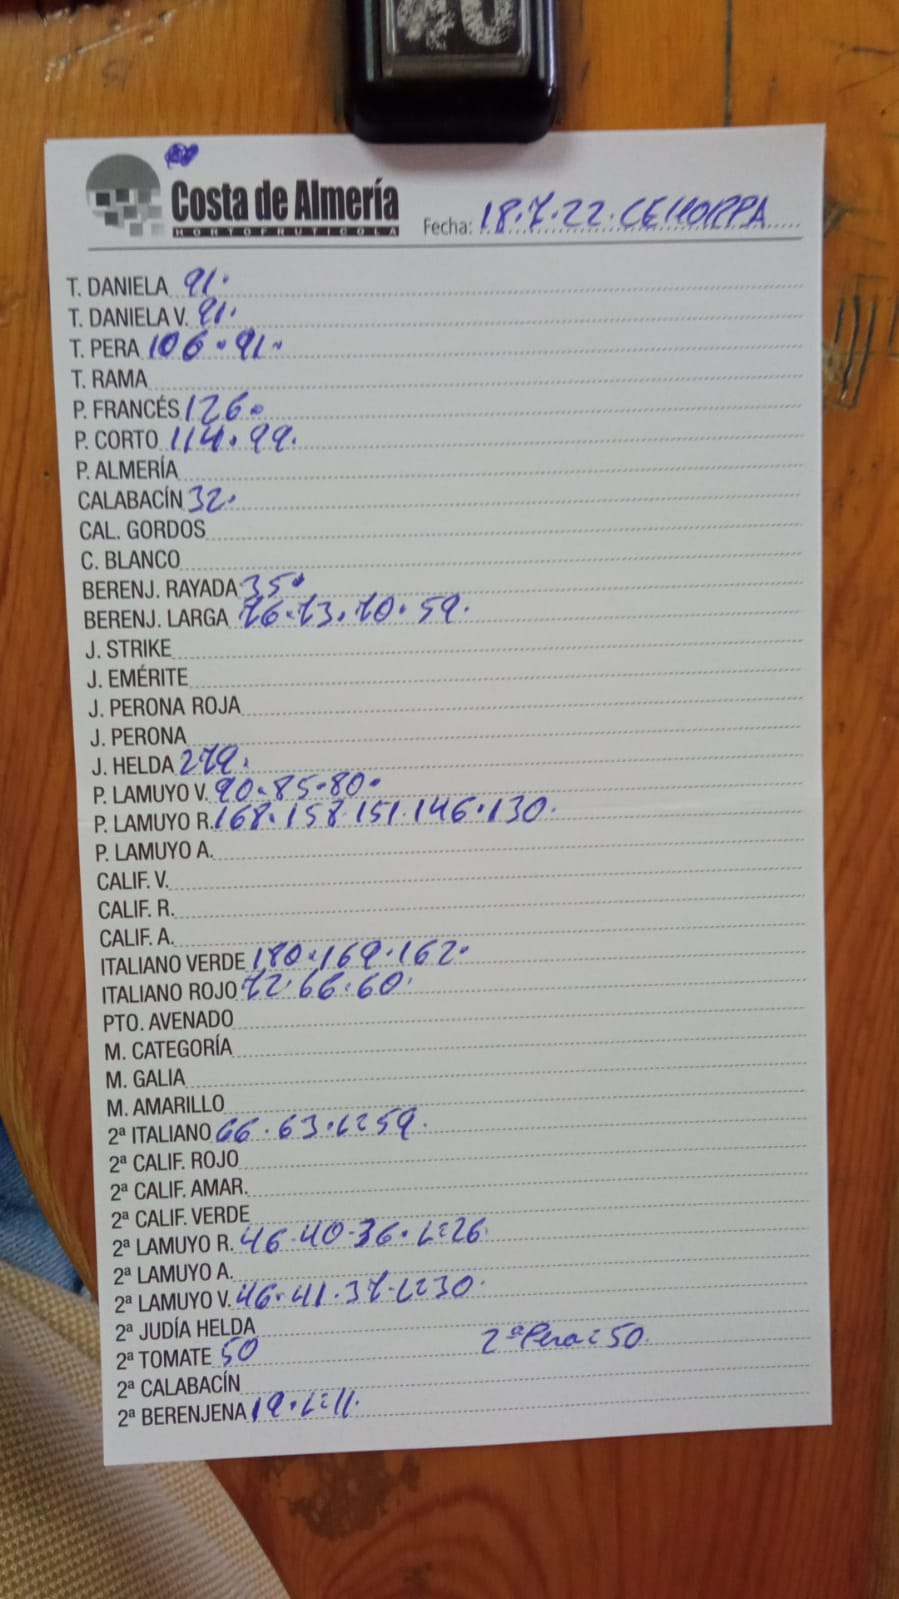 Costa de Almería
HORTOFRUTICOLA
Fecha: 18.7.22. CEHORPA
T. DANIELA 91.
T. DANIELA V. 91.
T. PERA 106.91.
T. RAMA
P. FRANCÉS 126.
P. CORTO 114.99.
P. ALMERÍA
CALABACÍN 32.
CAL. GORDOS
C. BLANCO
BERENJ. RAYADA 35.
BERENJ. LARGA 76.73.70.59.
J. STRIKE
J. EMÉRITE
J. PERONA ROJA
J. PERONA
J. HELDA 279.
P. LAMUYO V. 90.85.80.
P. LAMUYO R. 168.158.151.146.130.
P. LAMUYO A.
CALIF. V.
CALIF. R.
CALIF. A.
ITALIANO VERDE 180.169.162.
ITALIANO ROJO 72.66.60.
PTO. AVENADO
M. CATEGORÍA
M. GALIA
M. AMARILLO
2ª ITALIANO 66.63.L=59.
2ª CALIF. ROJO
2ª CALIF. AMAR.
2ª CALIF. VERDE
2ª LAMUYO R. 46.40.36.L=26.
2ª LAMUYO A.
2ª LAMUYO V. 46.41.37.L=30.
2ª JUDÍA HELDA
2ª TOMATE 50 2ª Pera=50.
2ª CALABACÍN
2ª BERENJENA 19.L=11.